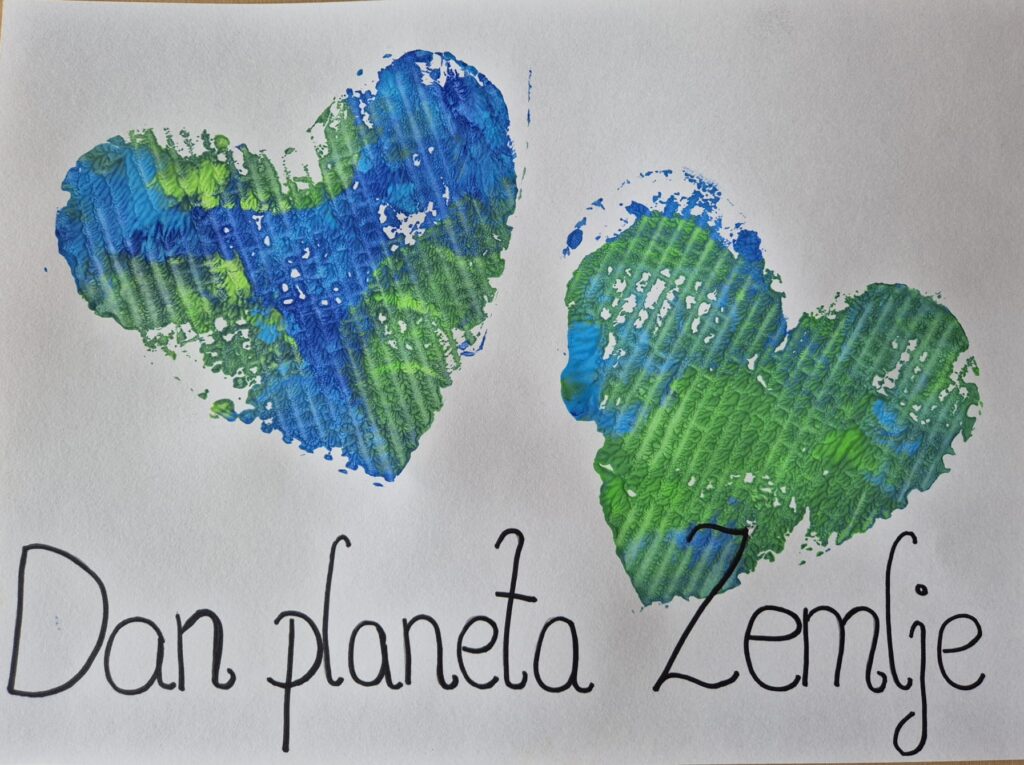 Dan planeta Zemlje